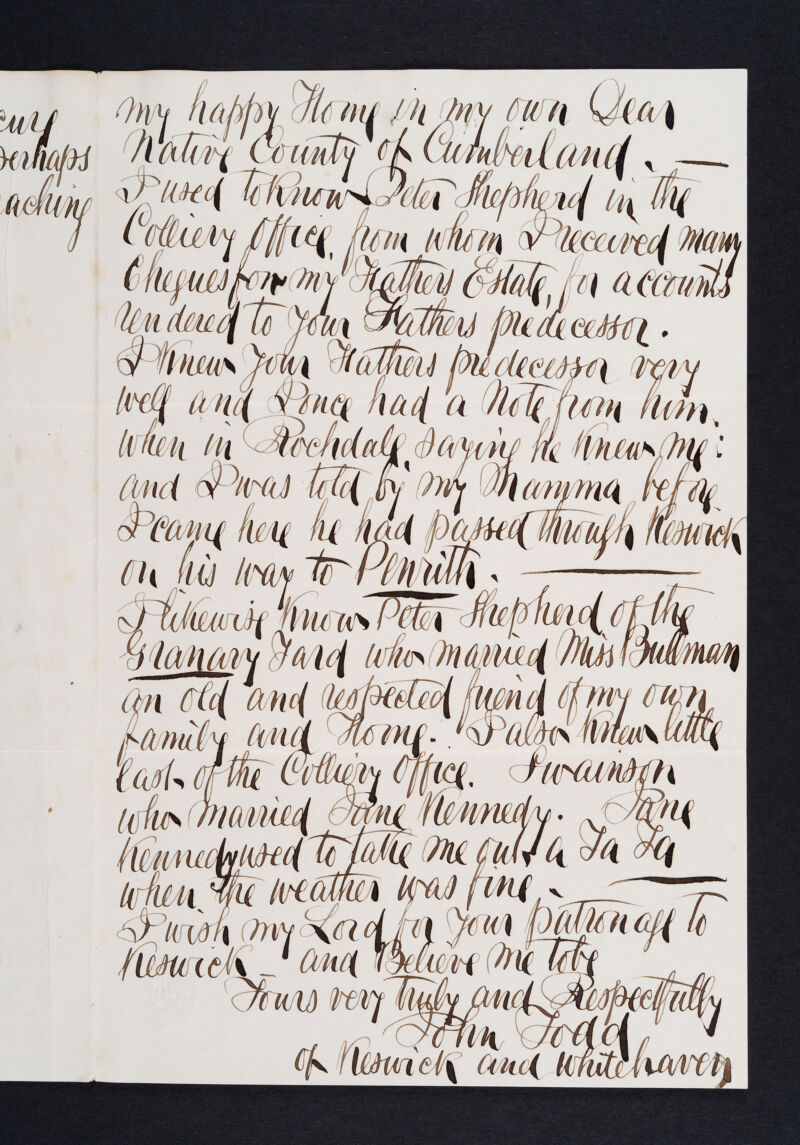 cure
perhaps
aching
my happy Home in my own Dear
Native County of Cumberland. —
I used to know Peter Shepherd in the
Colliery Office, from whom I received many
Cheques for my Fathers Estate, for accounts
rendered to your Fathers predecessor.
I knew your Fathers predecessor very
well and I once had a Note from him,
when in Rochdale, saying he knew me:
and I was told by my Mamma before
I came here he had passed through Keswick
on his way to Penrith. —
I likewise know Peter Shepherd of the
Granary Yard who married Miss Bullman
an old and respected friend of my own
family and Home. I also knew little
East of the Colliery Office. Swainson
who married Jane Kennedy. Jane
Kennedy used to take me out a Ta Ta
when the weather was fine. —
I wish my Lord for your patronage to
Keswick — and Believe me to be
Yours very truly and Respectfully
John Todd
of Keswick and Whitehaven